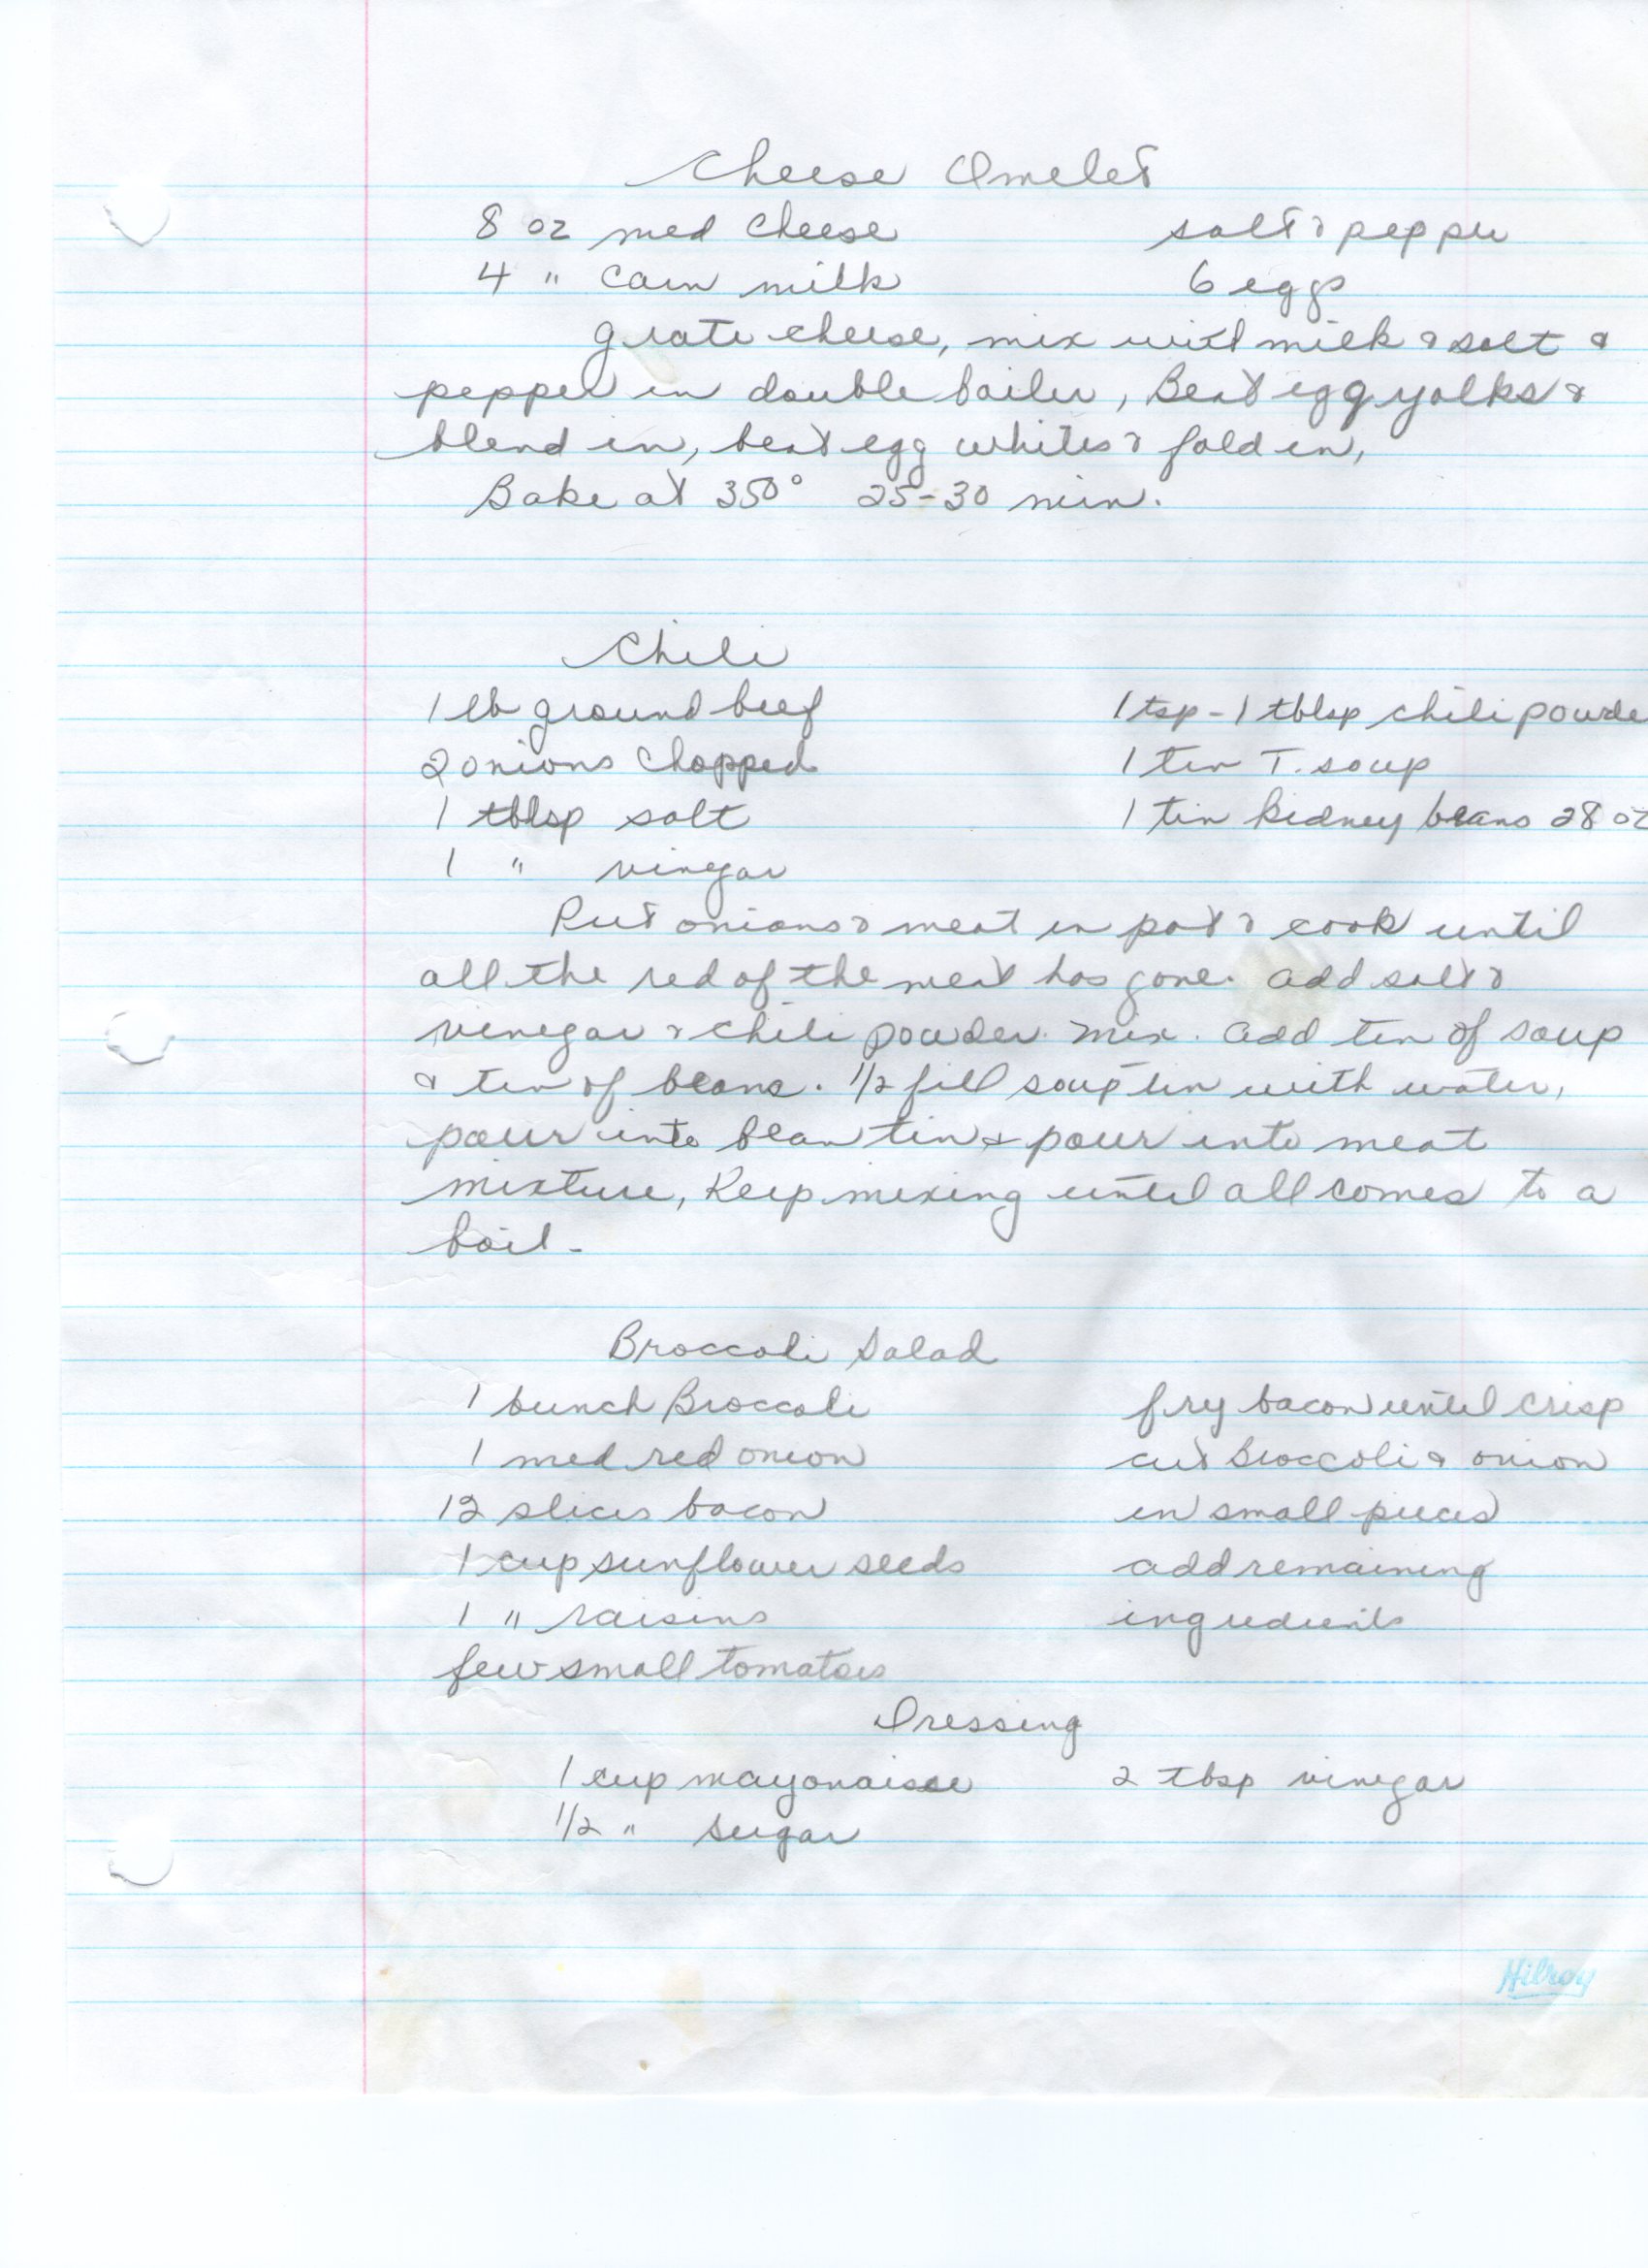 Cheese Omelet
8 oz med cheese salt & pepper
4 " Carn milk 6 eggs
grate cheese, mix with milk & salt &
pepper in double boiler, Beat egg yolks &
blend in, beat egg whites & fold in,
Bake at 350° 25-30 min.
Chili
1 lb ground beef 1 tsp - 1 tblsp chili powde
2 onions chopped 1 tin T. soup
1 tblsp salt 1 tin kidney beans 28 oz
1 " vinegar
Put onions & meat in pot & cook until
all the red of the meat has gone. add salt &
vinegar & chili powder. mix. add tin of soup
& tin of beans. 1/2 fill soup tin with water,
pour into bean tin & pour into meat
mixture, Keep mixing until all comes to a
boil -
Broccoli Salad
1 bunch Broccoli fry bacon until crisp
1 med red onion cut Broccoli & onion
12 slices bacon in small pieces
1 cup sunflower seeds add remaining
1 " raisins ingredients
few small tomatoes
Dressing
1 cup mayonaisse 2 tbsp vinegar
1/2 " sugar
Hilroy